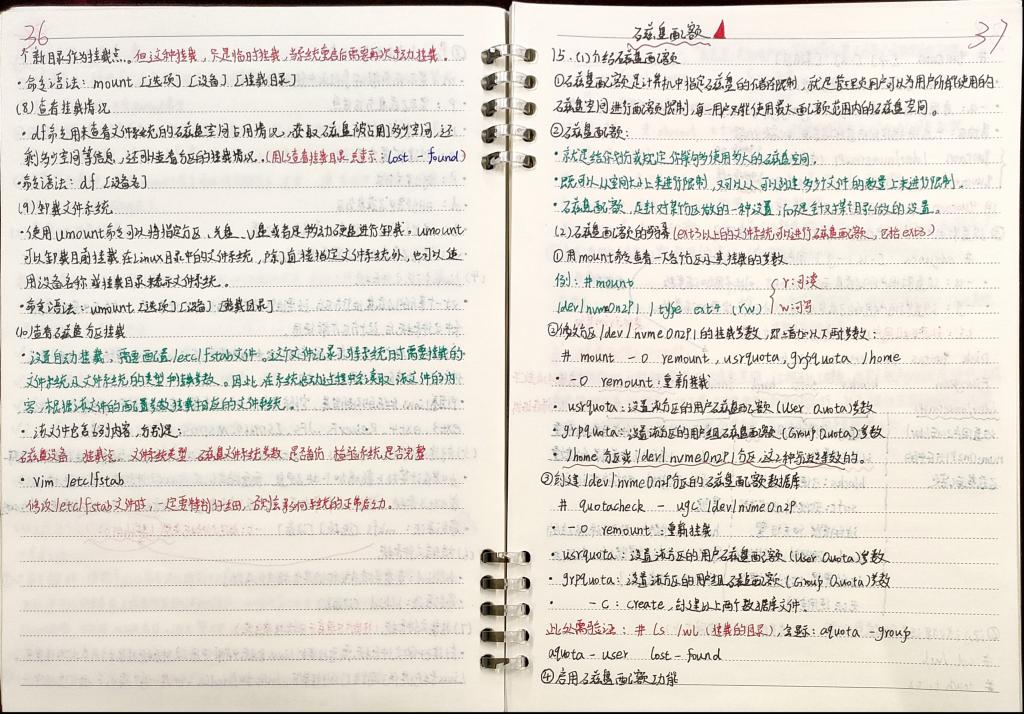 36
个新目录作为挂载点。但这种挂载,只是临时挂载,当系统重启后需要再次手动挂载。
·命令语法:mount [选项] [设备] [挂载目录]
(8)查看挂载情况
·df命令用来查看文件系统的磁盘空间占用情况,获取磁盘被占用多少空间,还
剩多少空间等信息,还可以查看分区的挂载情况。(用ls查看挂载目录 则显示:lost-found)
·命令语法:df [设备名]
(9)卸载文件系统
·使用umount命令可以将指定分区、光盘、U盘或者是移动硬盘进行卸载。umount
可以卸载目前挂载在Linux目录中的文件系统,除了直接指定文件系统外,也可以使
用设备名称或挂载目录来表示文件系统。
·命令语法:umount [选项] [设备] [挂载目录]
(10)查看磁盘分区挂载
·设置自动挂载,需要配置/etc/fstab文件,这个文件记录了特系统时需要挂载的
文件系统及文件系统的类型和挂载参数。因此,在系统启动过程中会读取该文件的内
容,根据该文件的配置参数挂载相应的文件系统。
·该文件包含6列内容,分别是:
磁盘设备 挂载点 文件系统类型 磁盘文件系统参数 是否备份 检验系统是否完整
·vim /etc/fstab
修改/etc/fstab文件时,一定要特别仔细,否则会影响系统的正常启动。
37
磁盘配额
15.(1)介绍磁盘配额
①磁盘配额是计算机中指定磁盘的储存限制,就是管理员用户可以为用户所能使用的
磁盘空间进行配额限制,每一用户只能使用最大配额范围内的磁盘空间。
②磁盘配额:
·就是给你访或规定你能够使用多大的磁盘空间;
·既可以从空间大小上来进行限制,又可以从可创建多少个文件的数量上来进行限制。
·磁盘配额,是针对某分区做的一种设置,而不是针对某目录做的设置。
(2)磁盘配额的步骤(ext3以上的文件系统可以进行磁盘配额,包括ext3)
①用mount命令查看一下各分区及其挂载的参数
例:# mount { r:可读
/dev/nvm0n2P1 / type ext4 (rw) w:可写
②修改分区/dev/nvme0n2P1的挂载参数,即增加以下两个参数:
# mount -o remount,usrquota,grpquota /home
·-o remount:重新挂载
·usrquota:设置该分区的用户磁盘配额(User Quota)参数
·grpquota:设置该分区的用户组磁盘配额(Group Quota)参数
·/home分区或/dev/nvme0n2P1分区,这2种系统是等效的。
③创建/dev/nvme0n2P分区的磁盘配额数据库
# quotacheck -ugc /dev/nvme0n2P
·-o remount:重新挂载
·usrquota:设置该分区的用户磁盘配额(User Quota)参数
·grpquota:设置该分区的用户组磁盘配额(Group Quota)参数
· -c:create,创建以上两个数据库文件。
此处需验证:# ls /wl(挂载的目录),会显示:aquota-group
aquota-user lost-found
④启用磁盘配额功能